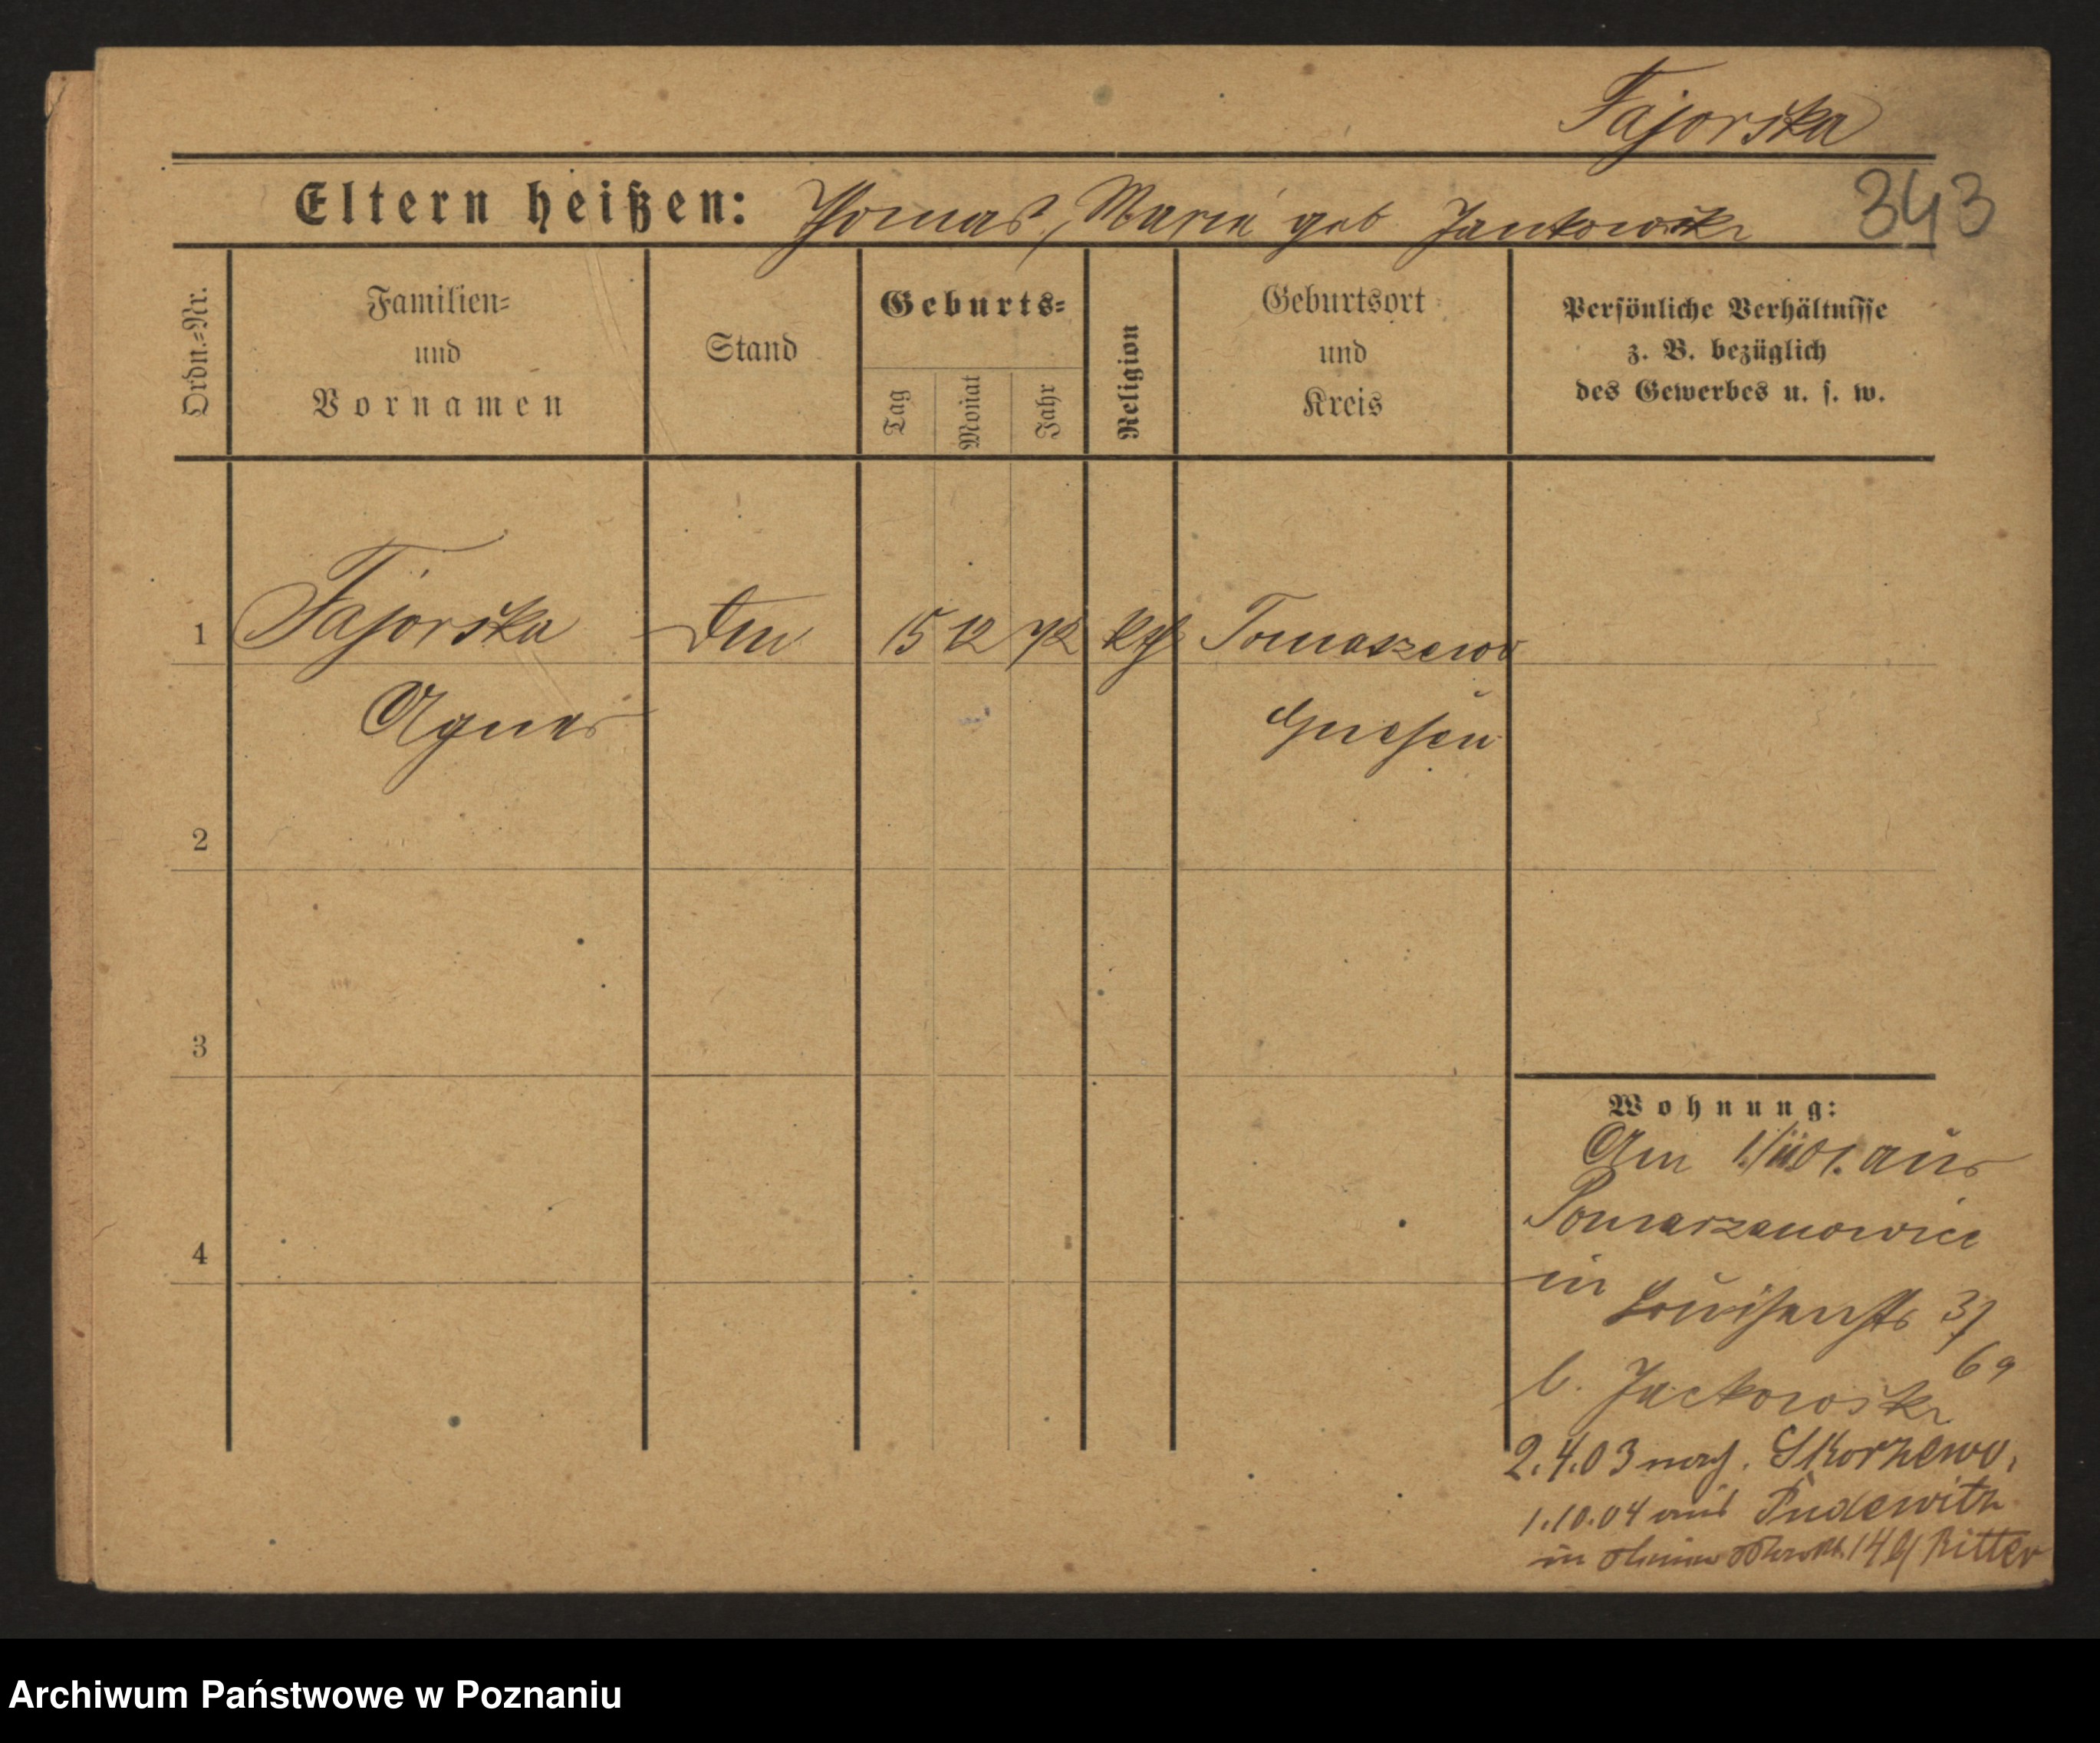 Fajorska
343
Eltern heißen: Thomas, Maria geb Jankowska
Ordn.-Nr.
Familien-
und
Vornamen
Stand
Geburts-
Tag
Monat
Jahr
Religion
Geburtsort
und
Kreis
Persönliche Verhältnisse
z. B. bezüglich
des Gewerbes u. s. w.
1 Fajorska 15 12 72 kth Tomaszewo
Agnes Gnesen
2
3
4
Wohnung:
Am aus
Pomarzanowice
in
Louisenstr 3/
69
b. Jackowski
2.4.03 nach. Skorzewo,
1.10.04 aus Pudewitz
in 14 b/ Ritter
Archiwum Państwowe w Poznaniu